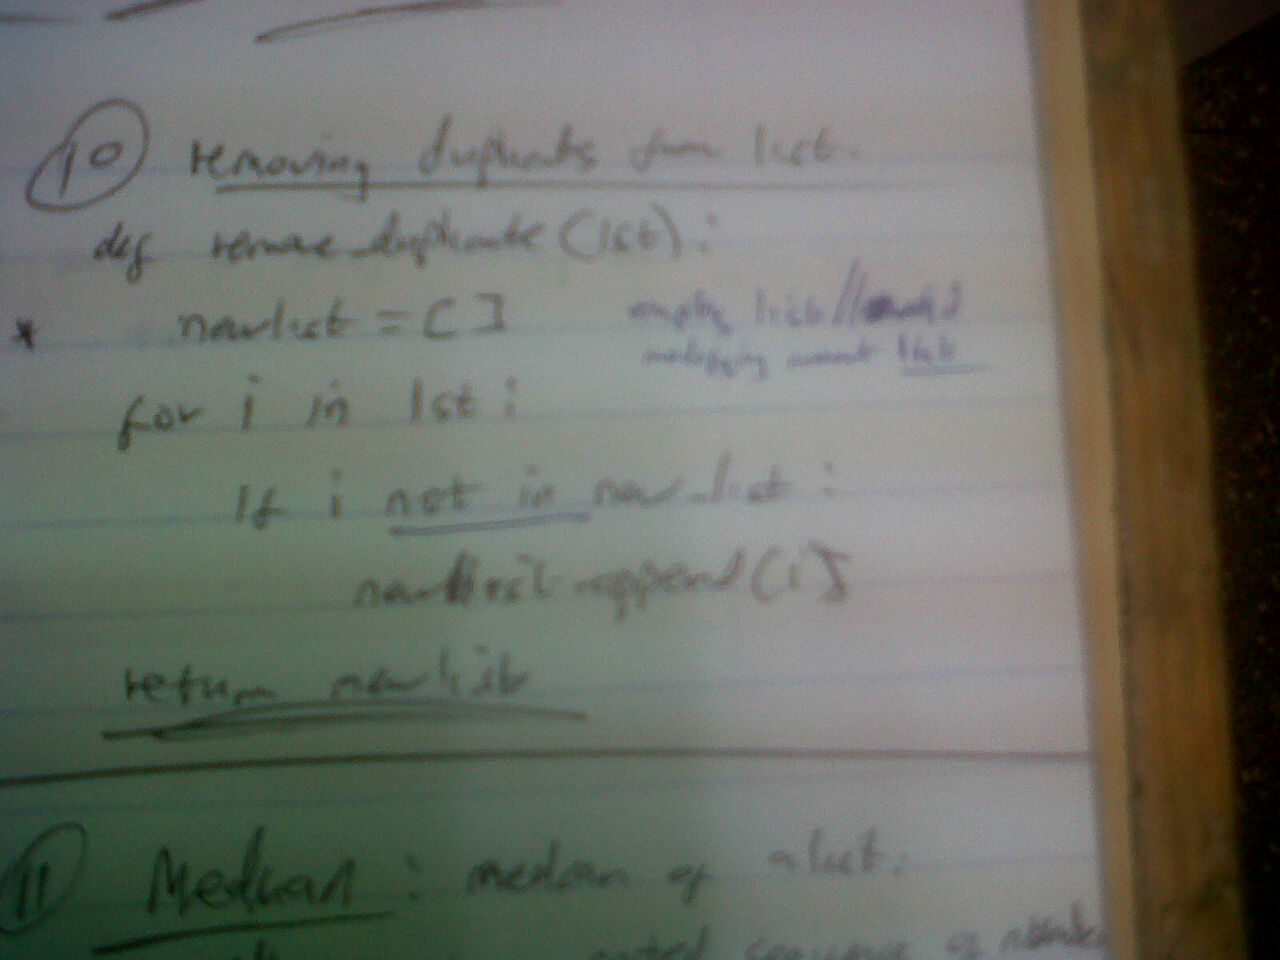 10 removing duplicates from list.
def remove_duplicate(lst):
* newlist = [ ] empty list//
modifying current list
for i in lst:
If i not in new_list:
newlist.append(i)
return newlist
11 Median: median of a list.
sequence of numbers